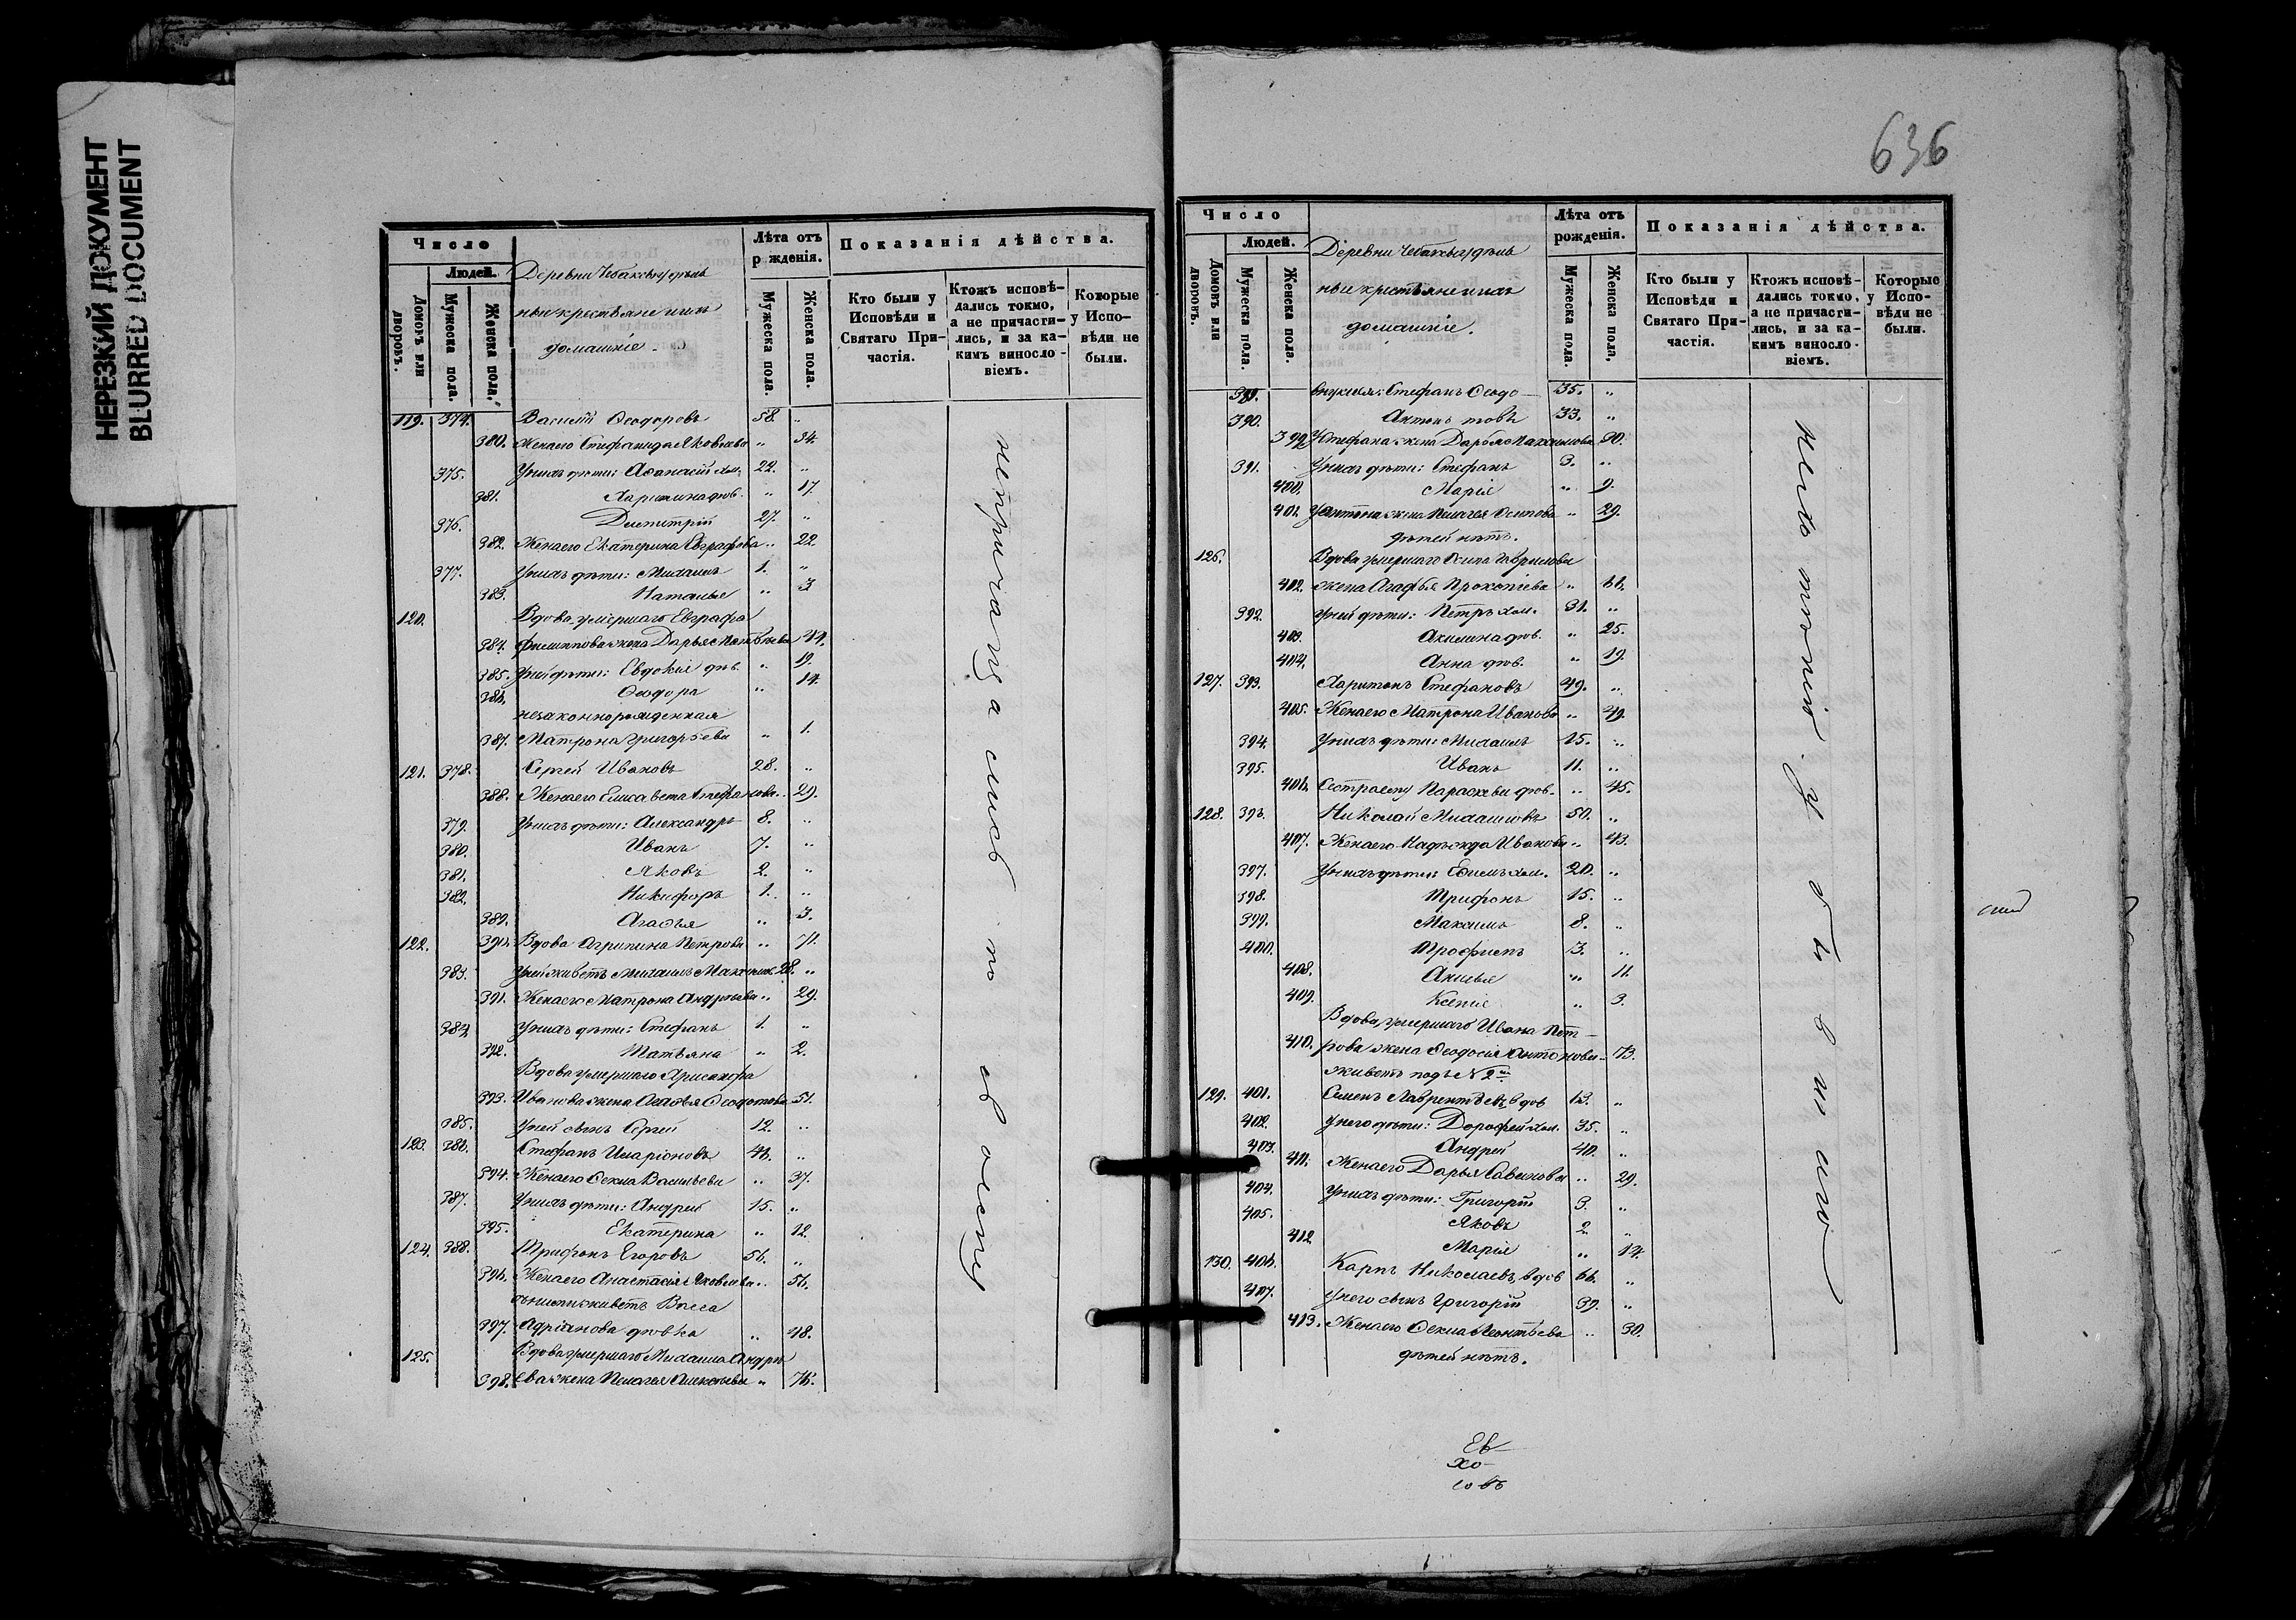 НЕРЕЗКИЙ ДОКУМЕНТ
BLURRED DOCUMENT
Число
Людей.
Домовъ или дворовъ.
Мужеска пола.
Женска пола.
Деревни
крестьяне и ихъ
домашніе.
Лѣта отъ
р жденія.
Мужеска пола.
Женска пола.
Показанія дѣйства.
Кто были у Исповѣди и Святаго Причастія.
Ктожъ исповѣдались токмо, а не причастились, и за какимъ винословіемъ.
Которые у Исповѣди не были.
119. 374. Василій Ѳеодоровъ 58. "
380. Жена его Стефанида Яковлева " 34.
375. У нихъ дѣти: Аѳанасій хол. 22. "
381. дѣв. " 17.
376. Димитрій 27. "
382. Жена его Екатерина Евграфова " 22.
377. У нихъ дѣти: Михаилъ 1. "
383. Наталья " 3
120. Вдова, умершаго Евграфа
384. Филиппова жена Дарья Матвѣева 44.
385. У ней дѣти: Евдокія дѣв. " 19.
386. Ѳеодора " 14.
незаконнорожденная
387. Матрона Григорьева " 1.
121. 378. Сергей Ивановъ 28. "
388. Жена его Елисавета Стефанова " 29.
379. У нихъ дѣти: Александръ 8. "
380. Иванъ 7. "
381. Яковъ 2. "
382. Никифоръ 1. "
389. Агафья " 3.
122. 390. Вдова Агрипина Петрова " 71.
383. У ней живетъ Михаилъ 28. "
391. Жена его Матрона Андреева " 29.
384. У нихъ дѣти: Стефанъ 1. "
392. Татьяна " 2.
Вдова умершаго
393. Иванова жена Агафья Ѳеодотова 51.
385. У ней сынъ Сергей 12. "
123. 386. Стефанъ Иларіоновъ 46. "
394. Жена его Ѳекла Васильева " 37.
387. У нихъ дѣти: Андрей 15. "
395. Екатерина " 12.
124. 388. Трифонъ Егоровъ 56. "
396. Жена его Анастасія Яковлева " 56.
съ ними живетъ Васса
397. Адріанова дѣвка " 48.
125. Вдова умершаго Михаила Андре
398. ева жена Пелагея Алексѣева " 76.
не причащались по св
636
Число
Людей.
Домовъ или дворовъ.
Мужеска пола.
Женска пола.
Деревни
крестьяне и ихъ
домашніе.
Лѣта отъ
рожденія.
Мужеска пола.
Женска пола.
Показанія дѣйства.
Кто были у Исповѣди и Святаго Причастія.
Ктожъ исповѣдались токмо, а не причастились, и за какимъ винословіемъ.
Которые у Исповѣди не были.
389. внуки ея: Стефанъ Ѳеодо 35. "
390. Антонъ товъ 33. "
399. У Стефана жена Дарья Максимова 30.
391. У нихъ дѣти: Стефанъ 3. "
400. Марія " 9.
401. У Антона жена Пелагея Осипова " 29.
дѣтей нѣтъ.
126. Вдова умершаго Гаврилова
402. жена Агафья Прокопіева " 66.
392. У ней дѣти: Петръ хол. 31. "
403. Акилина дѣв. " 25.
404. Анна дѣв. " 19.
127. 393. Харитонъ Стефановъ 49. "
405. Жена его Матрона Иванова " 49.
394. У нихъ дѣти: Михаилъ 15. "
395. Иванъ 11. "
406. Сестра ему Параскева дѣв. " 45.
128. 396. Николай Михаиловъ 50. "
407. Жена его Надежда Иванова " 43.
397. У нихъ дѣти: хол. 20. "
398. Трифонъ 15. "
399. Максимъ 8. "
400. Трофимъ 3. "
408. Анисья " 11.
409. Ксенія " 3.
Вдова, умершаго Ивана Пет-
410. рова жена Ѳеодосія Антонова 73.
живетъ подъ № 2
129. 401. Семенъ Лаврентьевъ вдов 73. "
402. У него дѣти: Дорофей хол. 35. "
403. Андрей 40. "
411. Жена его Дарья Савинова " 29.
404. У нихъ дѣти: Григорій 3. "
405. Яковъ 2. "
412. Марія " 14.
130. 406. Карпъ Николаевъ, вдов 66. "
407. У него сынъ Григорій 39. "
413. Жена его Ѳекла Леонтьева " 30.
дѣтей нѣтъ.
Ев-
хо-
ловъ